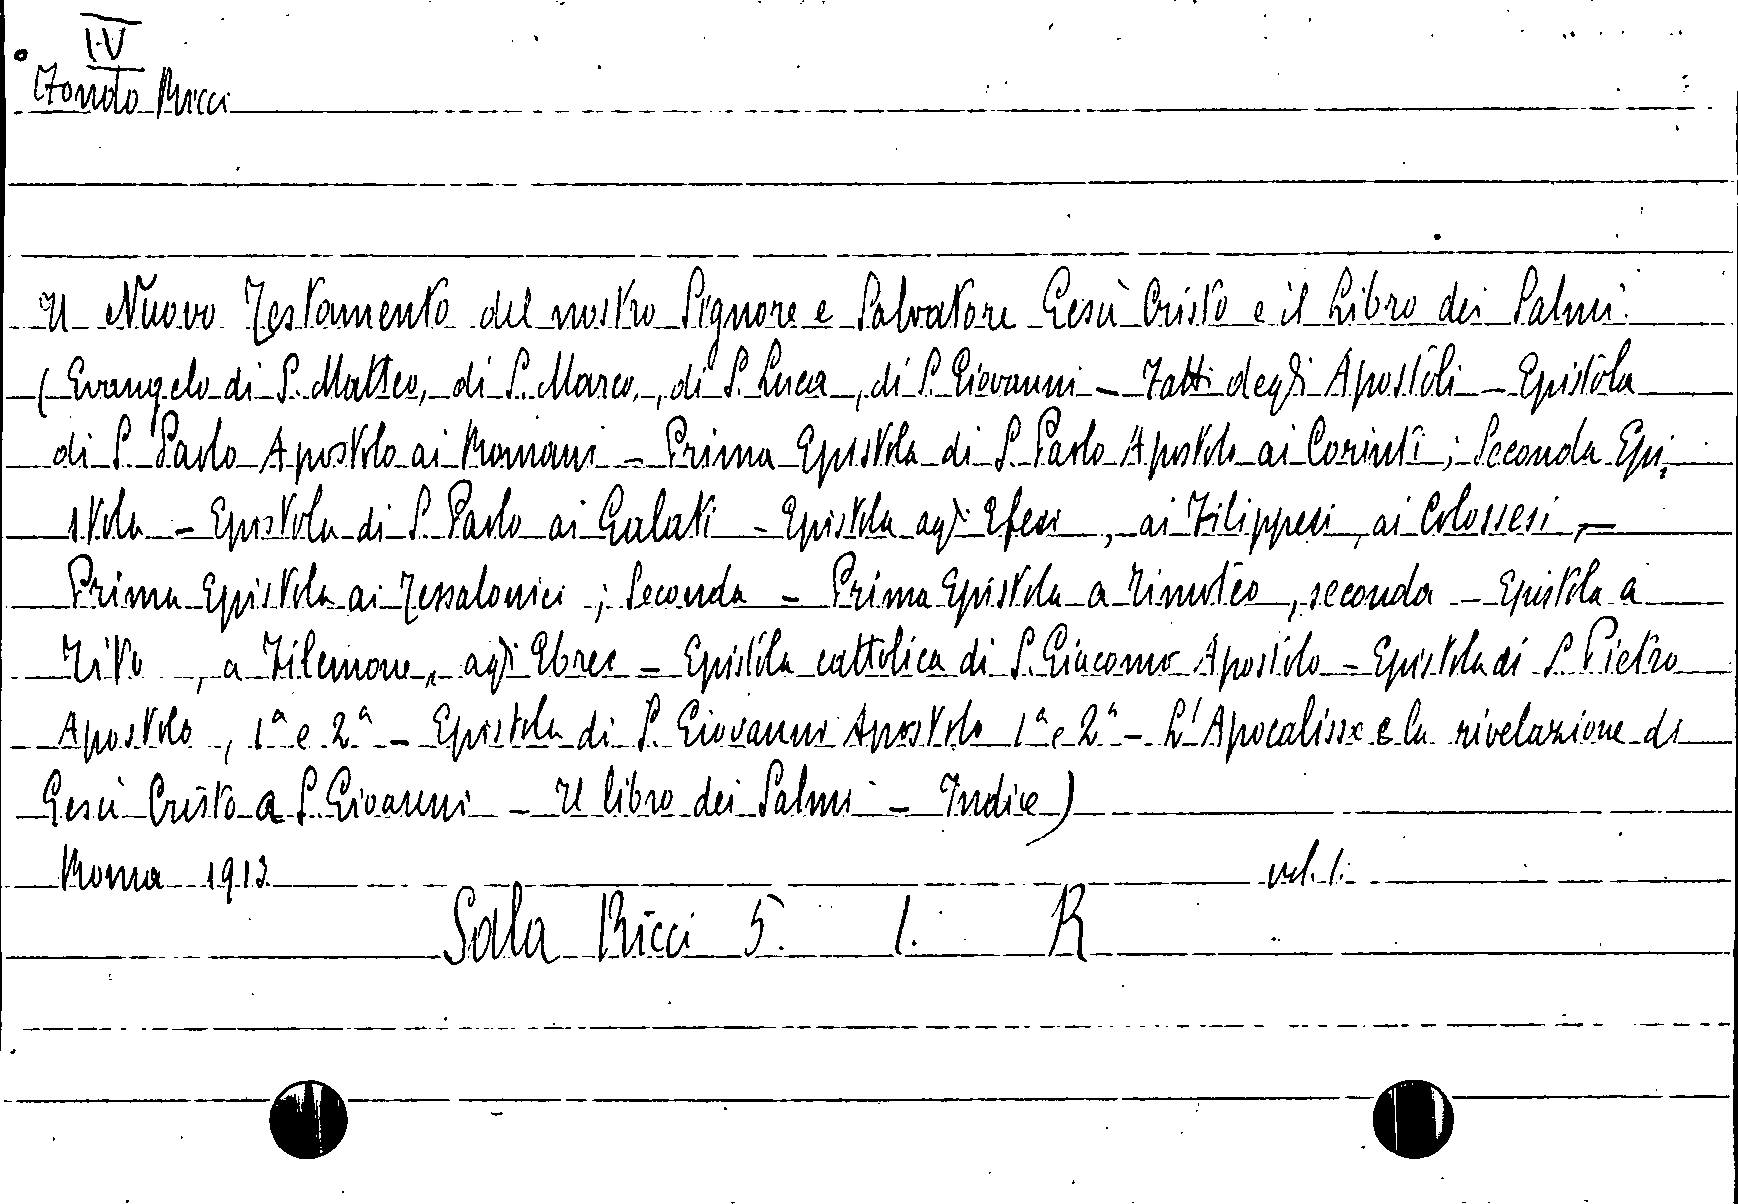 IV
Fondo Ricci
Il Nuovo Testamento del nostro Signore e Salvatore Gesù Cristo e il Libro dei Salmi.
(Evangelo di S. Matteo, di S. Marco, di S. Luca, di S. Giovanni – Fatti degli Apostoli – Epistola
di S. Paolo Apostolo ai Romani – Prima Epistola di S. Paolo Apostolo ai Corinti; Seconda Epi-
stola – Epistola di S. Paolo ai Galati – Epistola agli Efesi, ai Filippesi, ai Colossesi, –
Prima Epistola ai Tessalonici; Seconda – Prima Epistola a Timoteo, seconda – Epistola a
Tito, a Filemone, agli Ebrei – Epistola cattolica di S. Giacomo Apostolo – Epistola di S. Pietro
Apostolo, 1ª e 2ª – Epistola di S. Giovanni Apostolo 1ª e 2ª – L'Apocalisse e la rivelazione di
Gesù Cristo a S. Giovanni – Il libro dei Salmi – Indice)
Roma 1913 vol. 1.
Sala Ricci 5. 1. R